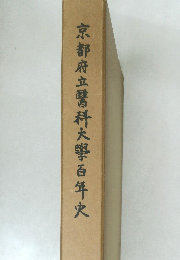 京都府立醫科大學百年史